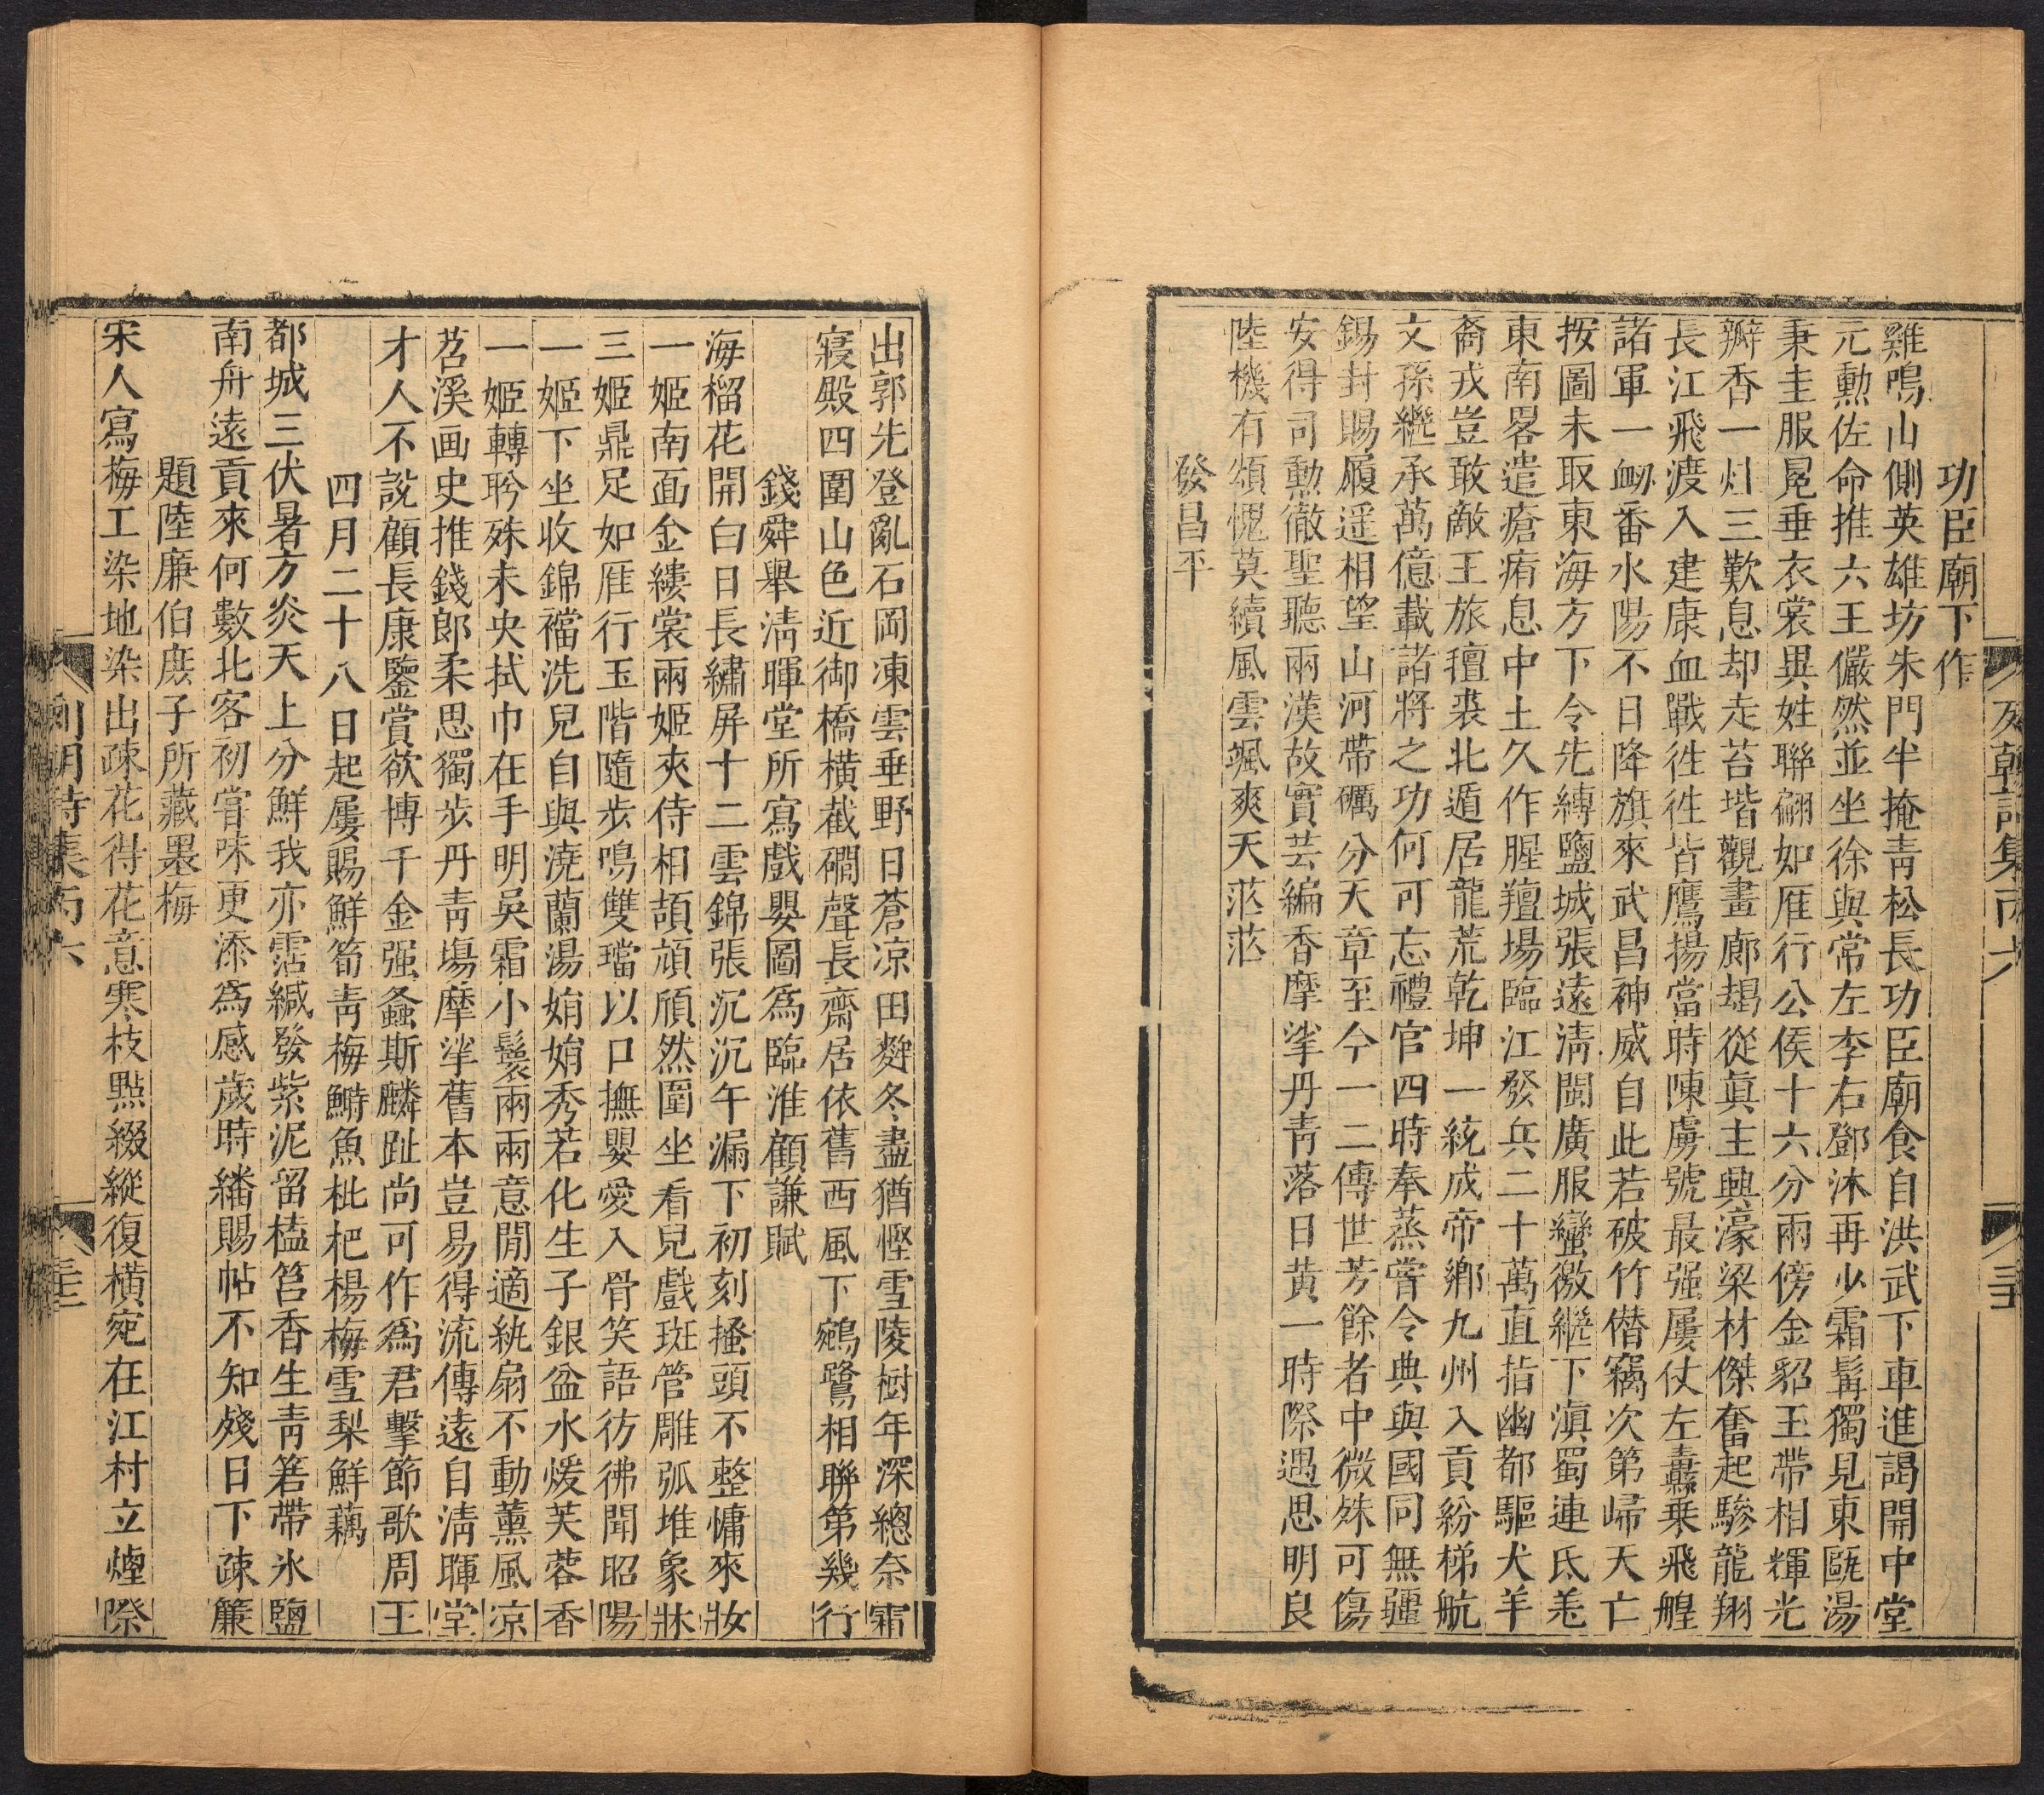 功臣廟下作
雞鳴山側英雄坊朱門半掩青松長功臣廟食自洪武下車進謁開中堂
元勳佐命推六王儼然並坐徐與常左李右鄧沐再少霜髯獨見東甌湯
秉圭服冕垂衣裳異姓聯翩如雁行公侯十六分兩傍金貂玉帶相輝光
瓣香一炷三歎息却走苔堦觀畫廊堨從眞主興濠梁材傑奮起驂龍翔
長江飛渡入建康血戰徃徃皆鷹揚當時陳虜號最强屢仗左纛乗飛艎
諸軍一衂番水陽不日降旗來武昌神威自此若破竹僣竊次第歸天亡
按圖未取東海方下令先縛鹽城張遠淸閩廣服蠻徼繼下滇蜀連氐羌
東南畧遣瘡痏息中土久作腥羶場臨江發兵二十萬直指幽都驅犬羊
裔戎豈敢敵王旅氊裘北遁居龍荒乾坤一統成帝鄉九州入貢紛梯航
文孫繼承萬億載諸將之功何可忘禮官四時奉蒸嘗令典與國同無疆
錫封賜履遥相望山河帶礪分天章至今一二傳世芳餘者中微殊可傷
安得司勳徹聖聽兩漢故實芸編香摩挲丹青落日黄一時際遇思明良
陸機有頌愧莫續風雲颯爽天茫茫
發昌平
出郭先登亂石岡凍雲垂野日蒼凉田麰冬盡猶慳雪陵樹年深總奈霜
寢殿四圍山色近御橋橫截磵聲長齋居依舊西風下鵷鷺相聯第幾行
錢舜舉淸暉堂所寫戲嬰圖爲臨淮顧謙賦
海榴花開白日長繡屏十二雲錦張沉沉午漏下初刻搔頭不整慵來妝
一姬南面金縷裳兩姬夾侍相頡頏頎然圍坐看兒戲斑管雕弧堆象牀
三姬鼎足如雁行玉階隨步鳴雙璫以口撫嬰愛入骨笑語彷彿聞昭陽
一姬下坐收錦襠洗兒自與澆蘭湯娟娟秀若化生子銀盆水煖芙蓉香
一姬轉肣殊未央拭巾在手明吳霜小鬟兩兩意閒適紈扇不動薰風凉
苕溪画史推錢郎柔思獨步丹青塲摩挲舊本豈易得流傳遠自淸暉堂
才人不說顧長康鑒賞欲博千金强螽斯麟趾尚可作爲君擊節歌周王
四月二十八日起屢賜鮮筍青梅鰣魚枇杷楊梅雪梨鮮藕
都城三伏暑方炎天上分鮮我亦霑緘發紫泥留榼笤香生青箬帶氷鹽
南舟遠貢來何數北客初嘗味更添爲感歲時繙賜帖不知殘日下疎簾
題陸廉伯庻子所藏墨梅
宋人寫梅工染地染出疎花得花意寒枝點綴縱復橫宛在江村立煙際